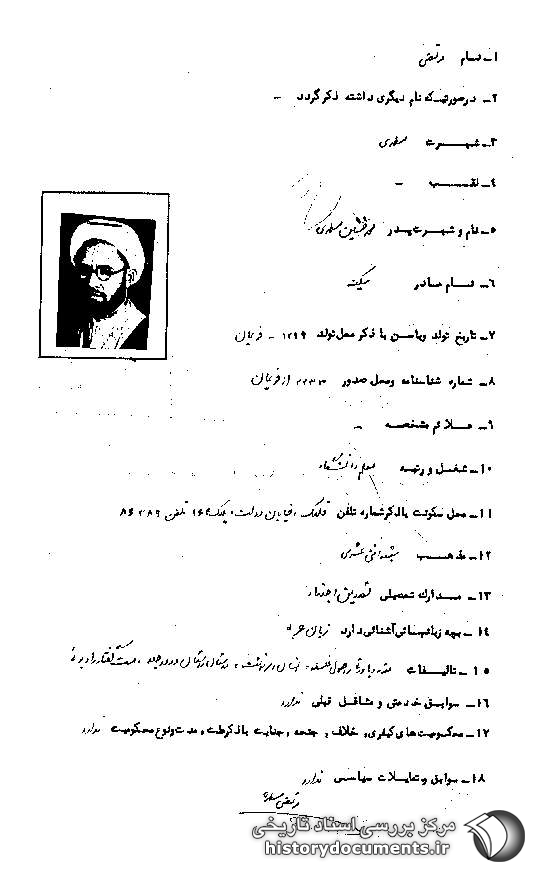 ۱ـ نــام مرتضی
۲ـ در صورتیکه نام دیگری داشته ذکر گردد -
۳ـ شهــرت مطهری
۴ـ لقــب -
۵ـ نام و شهرت پــدر محمدحسین مطهری
۶ـ نــام مــادر سکینه
۷ـ تاریخ تولد و یاسن با ذکر محل تولد ۱۲۹۹ - فریمان
۸ـ شماره شناسنامه و محل صدور ۲۲۳۳ از فریمان
۹ـ عــلائم مشخصــه -
۱۰ـ شغــل و رتبــه معلم دانشگاه
۱۱ـ محل سکونت با ذکر شماره تلفن قلهک، خیابان دولت، پلاک ۱۶۶ تلفن ۸۶۳۸۹
۱۲ـ مذهــب شیعه اثنی عشری
۱۳ـ مــدارک تحصیلی تصدیق اجتهاد
۱۴ـ بچه زبانهــائی آشنائی دارد زبان عربی
۱۵ـ تالیفــات اصول فلسفه، انسان و سرنوشت، داستان راستان در دو جلد،
۱۶ـ سوابق خدمتی و مشاغل قبلی ندارد
۱۷ـ محکومیت های کیفری، خلاف، جنحه، جنایت با ذکر علت و مدت و نوع محکومیت ندارد
۱۸ـ سوابق و تمایلات سیاسی ندارد
مرتضی مطهری
مرکز بررسی اسناد تاریخی
historydocuments.ir